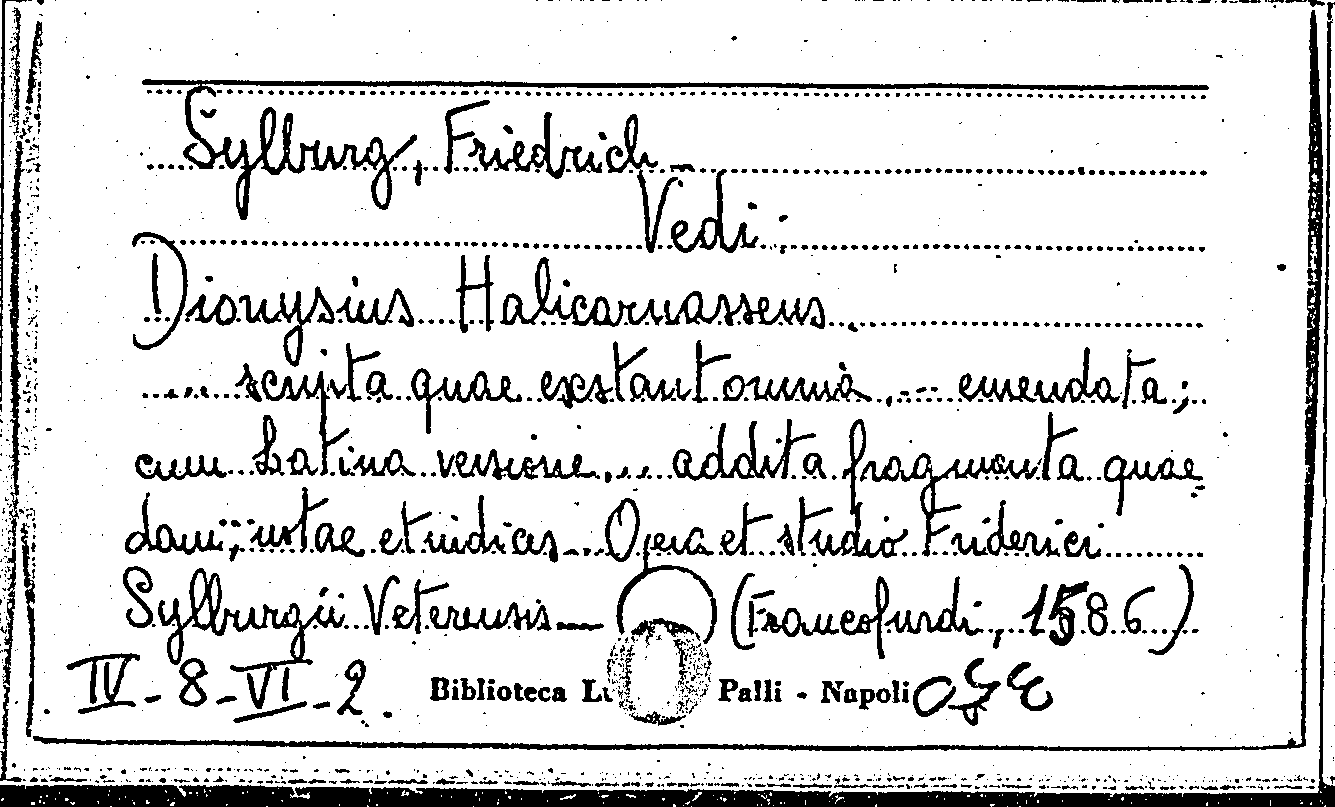 Sylburg, Friedrich -
Vedi:
Dionysius Halicarnasseus.
.... scripta quae exstant omnia ... emendata;
cum Latina versione... addita fragmenta quae
dam; notae et indices... Opera et studio Friderici
Sylburgii Veterensis — (Francofurdi, 1586)
IV-8-VI-2. Biblioteca Palli - Napoli